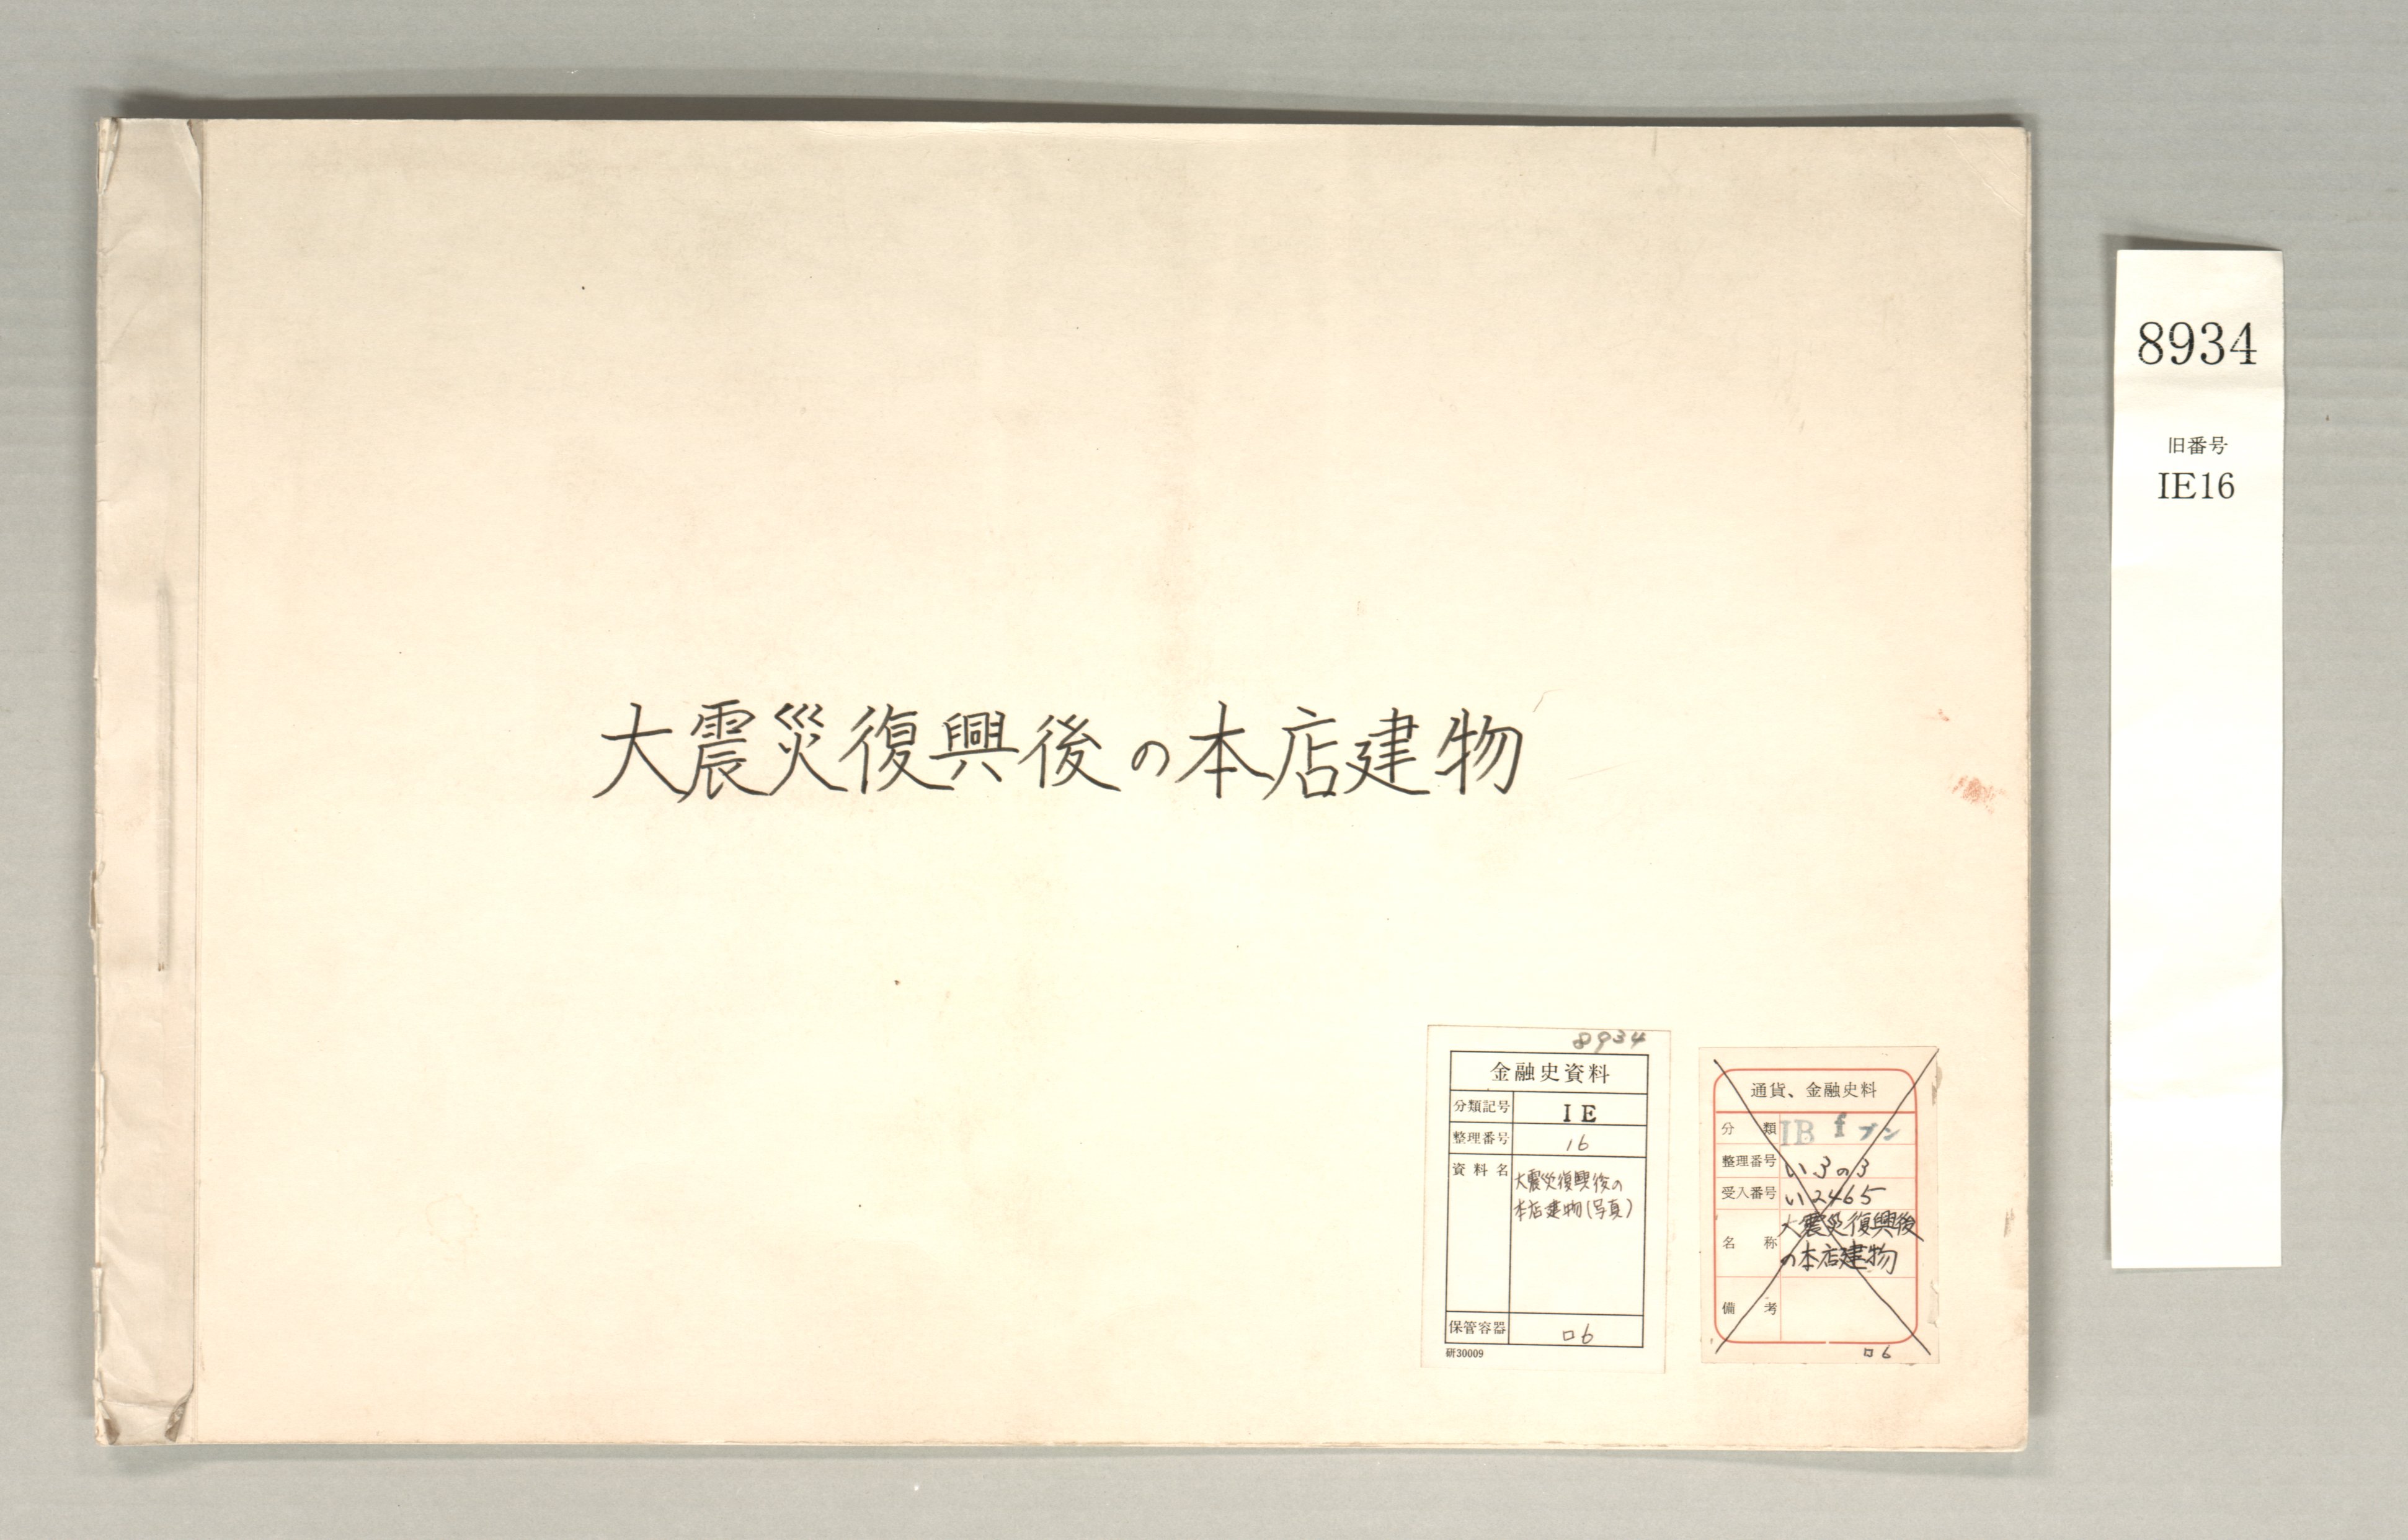 大震災復興後の本店建物
8934
金融史資料
分類記号 IE
整理番号 16
資料名 大震災復興後の
本店建物(写真)
保管容器 ロ6
研30009
通貨、金融史料
分類 IB f ブン
整理番号 い3の3
受入番号 い2465
名称 大震災復興後
の本店建物
備考
ロ6
8934
旧番号
IE16